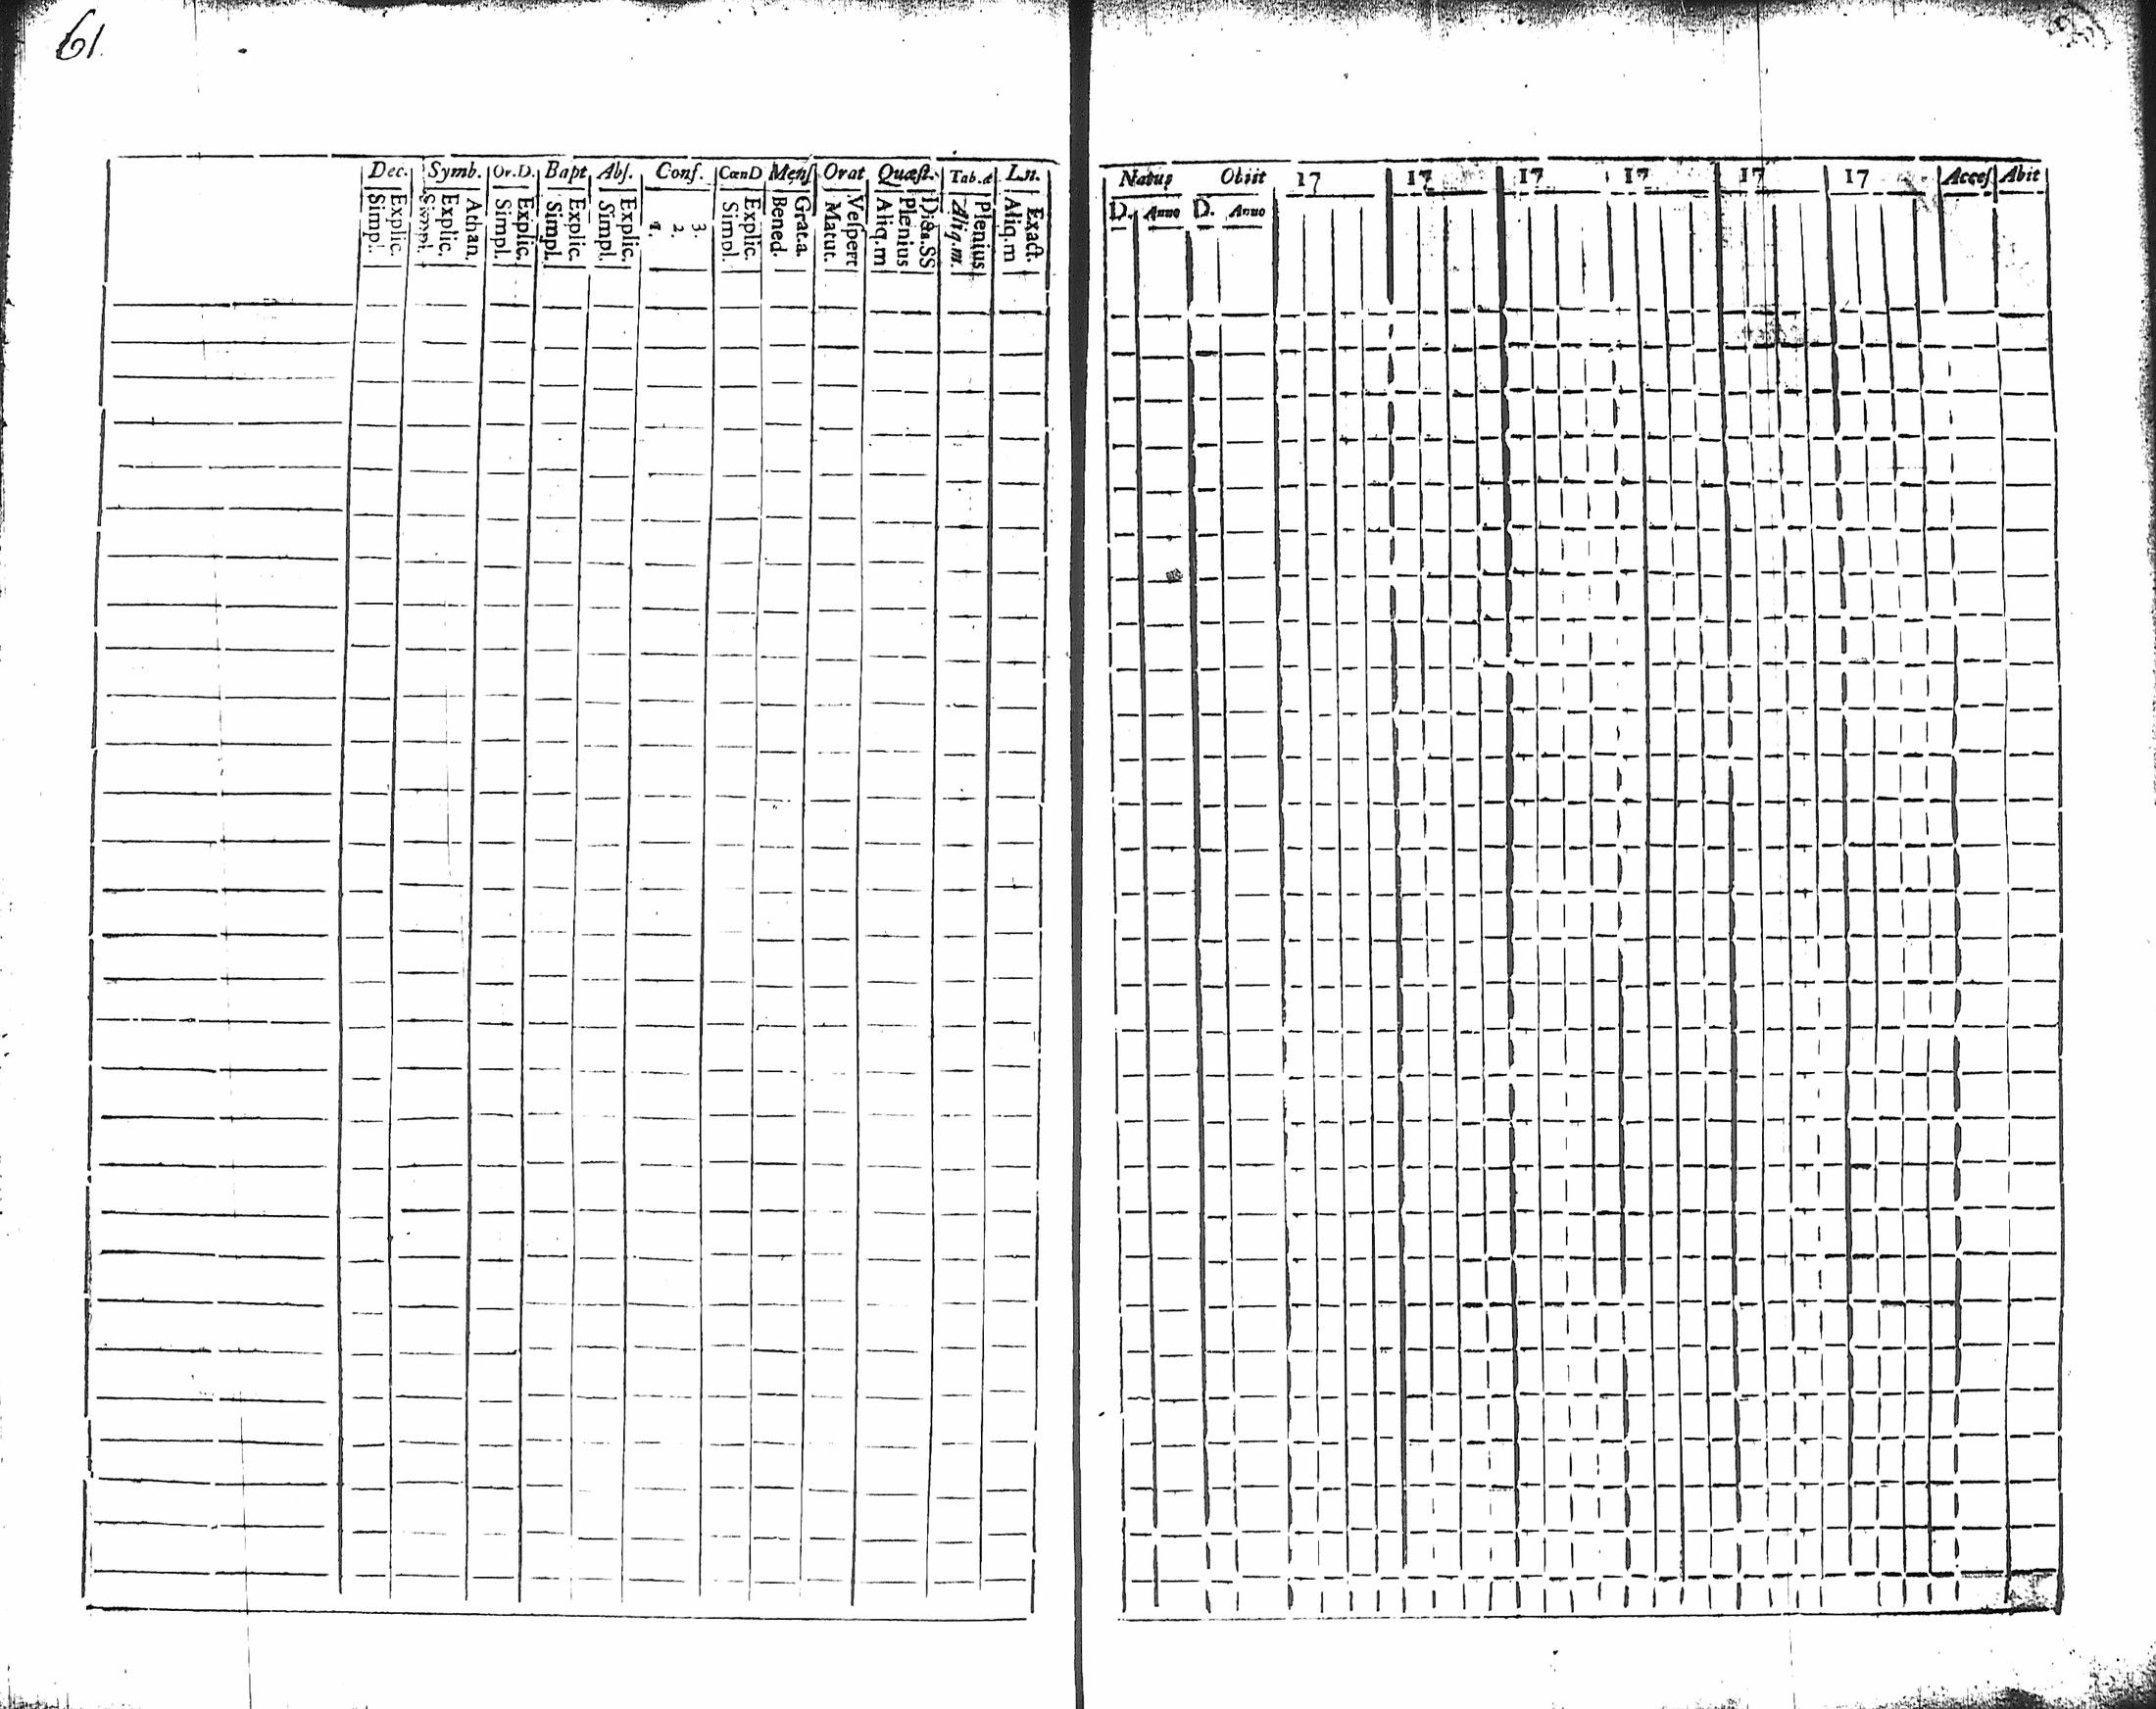 61
Dec. Symb. Or.D. Bapt Abſ. Conf. CœnD Menſ Orat Quæſt. Tab.æ Ln.
Explic. Simpl. Athan. Explic. Simpl. Explic. Simpl. Explic. Simpl. Explic. Simpl. 3. 2. 1. Explic. Simpl. Grat.a. Bened. Veſpert Matut. Dicta.SS Plenius Aliq.m Plenius Aliq.m. Exact. Aliq.m
Natus Obiit 17 17 17 17 17 17 Acceſ Abiit
D. Anno D. Anno